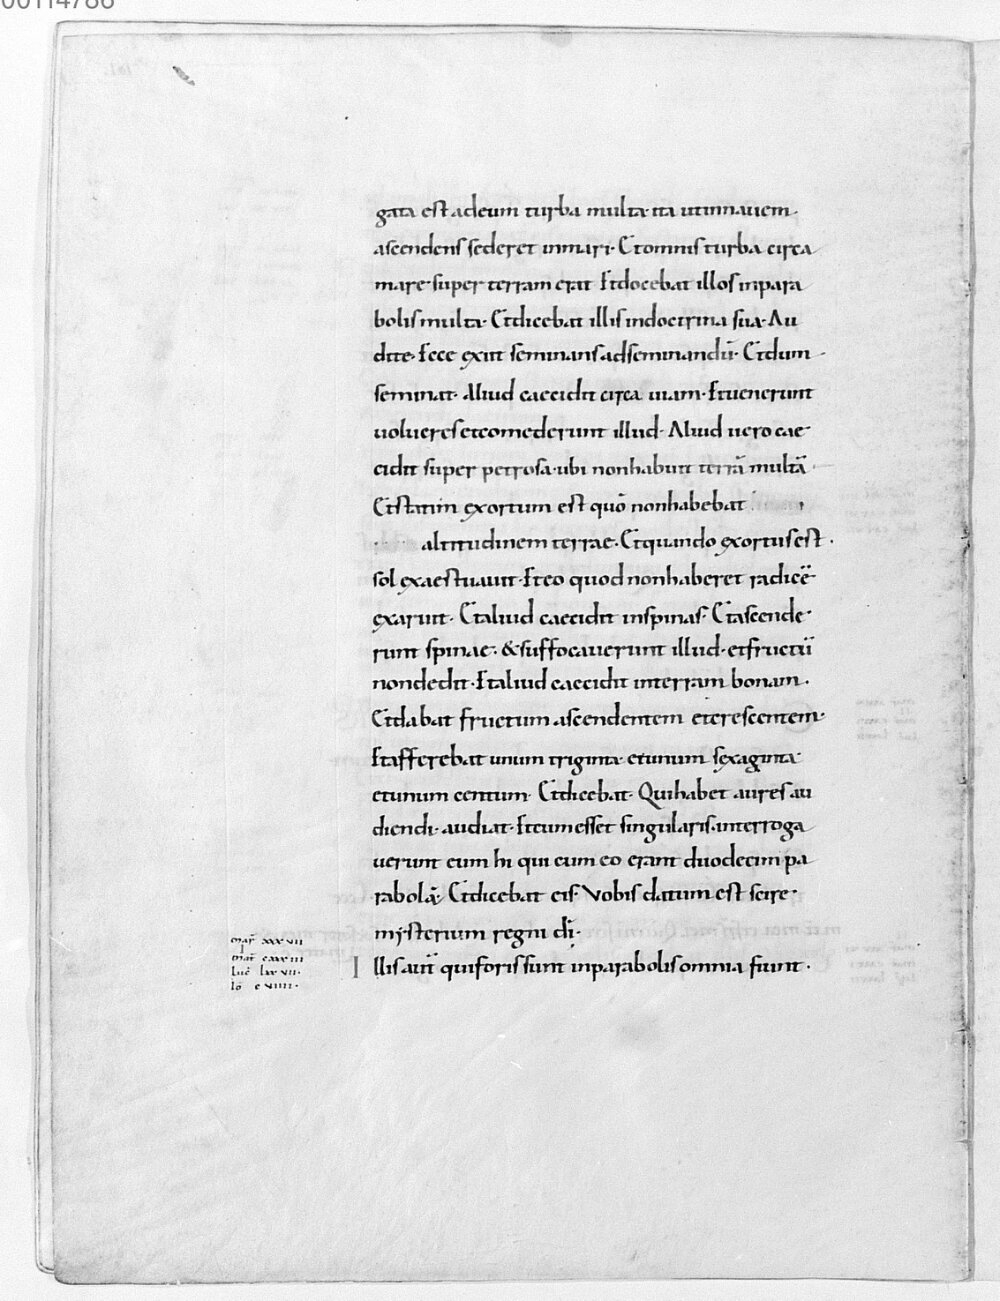 00114786
gata est adeum turba multa ita utinnauem
ascendens sederet inmari· Etomnis turba circa
mare· super terram erat Etdocebat illos inpara
bolis multa· Etdicebat illis indoctrina sua· Au
dite· Ecce exiit seminans adseminandū· Etdum
seminat· Aliud caecidit circa uiam· Etuenerunt
uolucres etcomederunt illud· Aliud uero cae
cidit super petrosa· ubi nonhabuit terrā multā
Etstatim exortum est quō nonhabebat
altitudinem terrae· Etquando exortus est·
sol exaestuauit· Eteo quod nonhaberet radicē
exaruit· Etaliud caecidit inspinas· Etascende
runt spinae· & suffocauerunt illud· etfructū
nondedit· Etaliud caecidit interram bonam·
Etdabat fructum ascendentem etcrescentem·
Etafferebat unum triginta· etunum sexaginta·
etunum centum· Etdicebat· Quihabet aures au
diendi· audiat· Etcumesset singularis· interroga
uerunt eum hi qui cum eo erant duodecim pa
rabolā· Etdicebat eis· Vobis datum est scire·
mysterium regni dī·
mar̄ xxxvii
I
mat̄ cxxxiii
luc̄ lxxvii·
Illis aut̄ quiforis sunt inparabolis omnia fiunt·